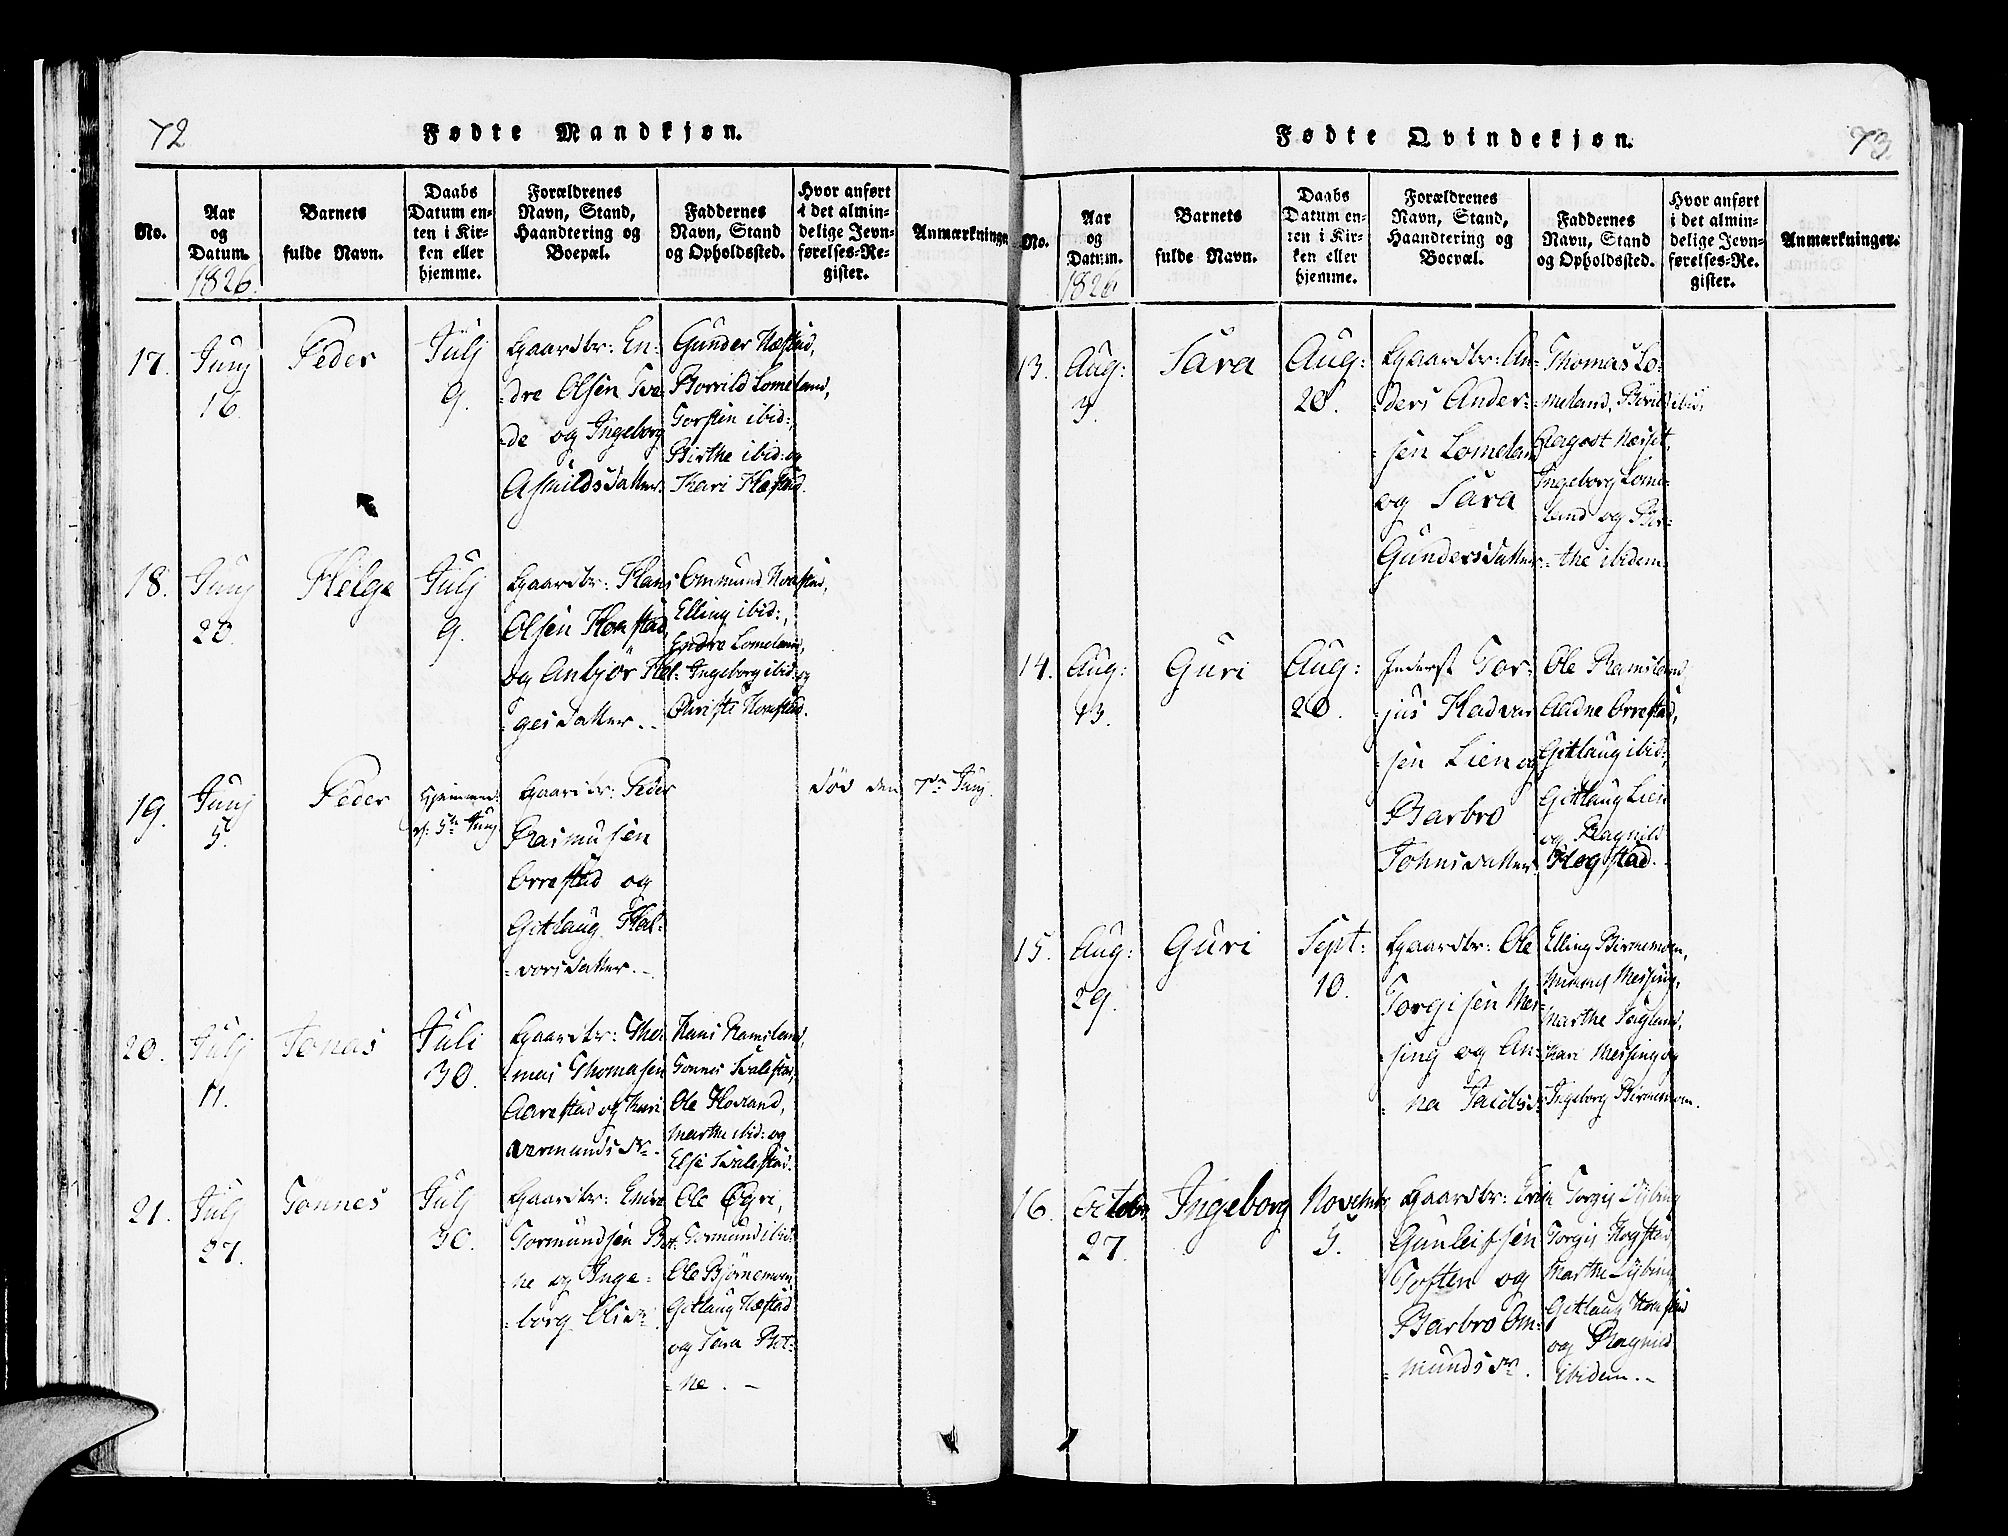 72
Fødte Mandkjøn.
No.
Aar
og
Datum.
1826.
Barnets
fulde Navn.
Daabs
Datum en-
ten i Kir-
ken eller
hjemme.
Forældrenes
Navn, Stand,
Haandtering og
Boepæl.
Faddernes
Navn, Stand
og Opholdssted.
Hvor anført
i det almin-
delige Jevn-
førelses-Re-
gister.
Anmærkninge
17.
Junj
16.
Peder
Julj
9.
Gaardbr: En-
dre Olsen Tve-
de og Ingeborg
Asuldsdatter.
Gunder Hæstad,
Borrild Lomeland,
Torsten ibid:,
Birthe ibid: og
Kari Hæstad.
18.
Junj
20.
Helge
Julj
9.
Gaardbr: Hans
Olsen Homstad,
og Anbjör Hel-
gesdatter.
Ommund Homstad,
Elling ibid:,
Endre Lomeland,
Ingeborg ibid: og
Christi Homstad.
19.
Junj
5.
Peder
Hjemmed:
d: 5te Junj
Gaardbr: Peder
Rasmusen
Orrestad og
Gitlaug Hal-
vorsdatter.
död den 7de Junj.
20.
Julj
11.
Jonas
Juli
30.
Gaardbr: Tho-
mas Thomasen
Aarestad og Kari
Vermundsdr.
Hans Ramsland,
Tonnes Svalestad,
Ole Hovland,
Marthe ibid: og
Else Svalestad.
21.
Julj
27.
Tönnes
Julj
30.
Gaardbr: Endre
Tormundsen Bot-
ne og Inge-
borg Olsdr.
Ole Øgri,
Tormund ibid:
Ole Björnemoen
Gitlaug Hæstad
og Sara Bot-
ne.
Fødte Qvindekjøn.
73.
No.
Aar
og
Datum.
1826
Barnets
fulde Navn.
Daabs
Datum en-
ten i Kir-
ken eller
hjemme.
Forældrenes
Navn, Stand,
Haandtering og
Boepæl.
Faddernes
Navn, Stand
og Opholdssted.
Hvor anført
i det almin-
delige Jevn-
førelses-Re-
gister.
Anmærkninger.
13.
Aug:
3.
Sara
Aug:
20.
Gaardbr: An-
ders Ander-
sen Lomeland
og Sara
Gundersdatter
Thomas Lo-
meland, Börild ibid,
Aagodt Næsset,
Ingeborg Lome-
land og Bir-
the ibidem.
14.
Aug:
13.
Guri
Aug:
20.
Inderst Tor-
jus Hadvar
sen Lien og
Barbro
Johnsdatter
Ole Ramsland
Aadne Orrestad,
Gitlaug ibid:,
Gitlaug Lien
og Ragnild
Hogstad.
15.
Aug:
29.
Guri
Sept:
10.
Gaardbr: Ole
Torgisen Mes-
sing og An-
na Jacobsd:
Elling Birnemoen,
Messing,
Marthe Fagland,
Kari Messing og
Ingeborg Birnemoen.
16.
Octobr
27.
Ingeborg
Novembr
5.
Gaardbr: Erik
Gunleifsen
Toften og
Barbro Om-
mundsdr.
Torgis Nybing
Torgis Hogstad
Marthe Nybing
Gitlaug Homstad
og Ragnild
ibidem.